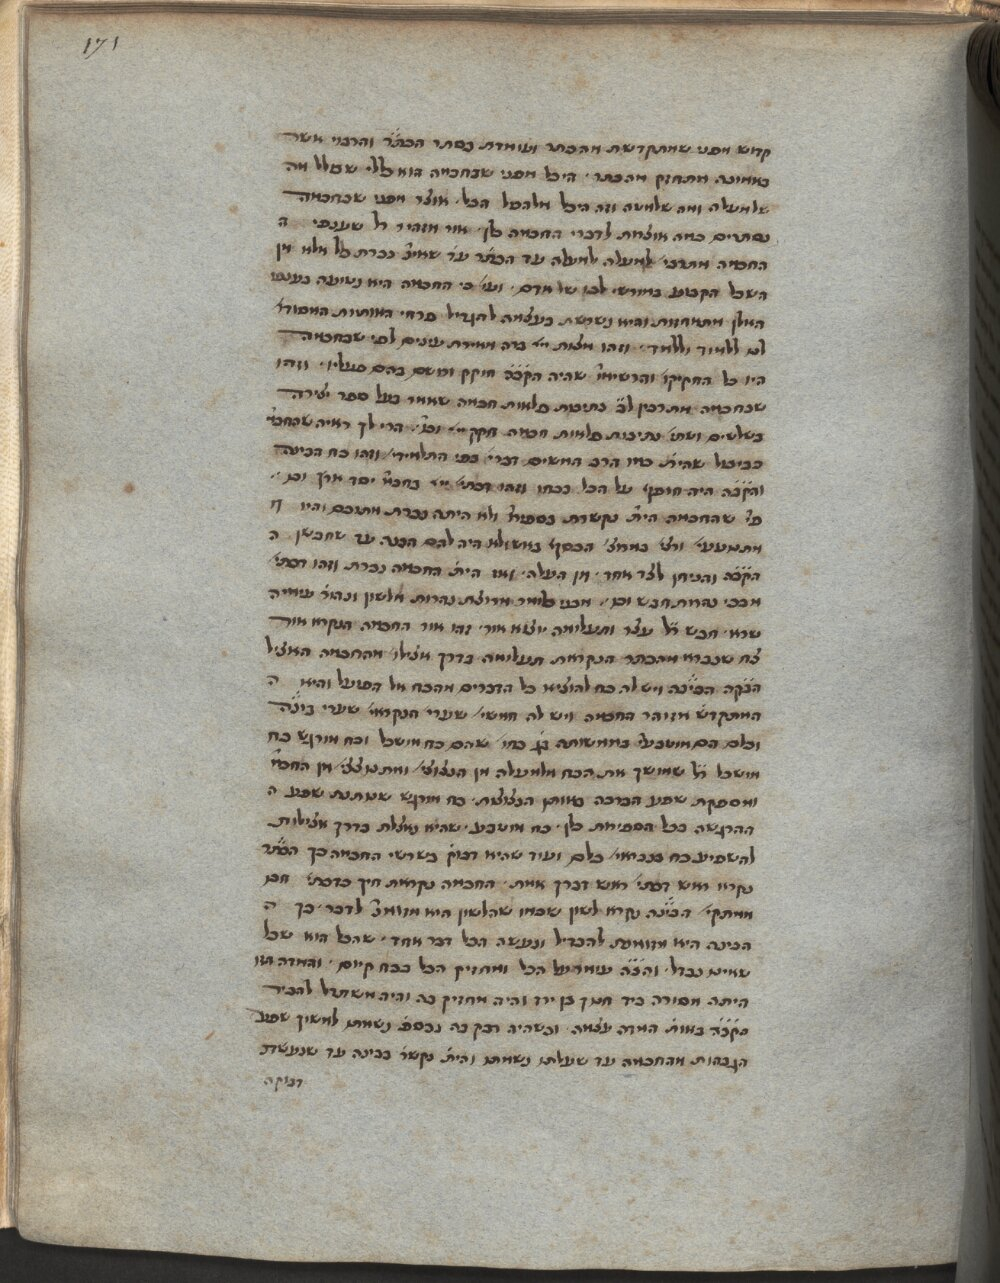 171
קדוש מפני שמתקדשת מהכתר ועומדת בסתר הכתר והרביי אשר
באמונה מתחזק מהכתר. היכל מפני שבחכמה הוא כללי שכולל מה
שלמעלה ומה שלמטה וזה היכל מלהכיל הכל. אוצר מפני שבחכמה
נסתרים כמה אוצרות לדברי החכמה כלן. אור מזהיר ר״ל שענפי ה
החכמה מתרבי׳ למעלה למעלה עד הכתר עד שאינ׳ נכרת כל אלא מן
השכל הקבוע בשרשי לבו של אדם. ועו׳ כי החכמה היא נטועה בענפי
האילן והיא נשרשת בעצמה להגדיל פרחי האותיות המסורו׳
לנו ללמוד וללמד. וזהו מצות י״י ברה מאירת עינים לפי שבחכמה
היו כל החקיקו׳ והרשימו׳ שהיה הקב״ה חוקק ורושם בהם פעליו. וזהו
שבחכמה מתרבין ל״ב נתיבות פלאות חכמה שאמר בעל ספר יצירה
בשלשים ושתי נתיבות פלאות חכמה חקק י״י וכו׳. הרי לך ראיה שבחכמ׳
כביכול שהית׳ כמו הרב המשים דברי׳ בפי התלמידי׳ וזהו כח הבינה
והקב״ה היה חותך על הכל בכחו וזהו דכתי׳ י״י בחכמ׳ יסד ארץ וכו׳.
פי׳ שהחכמה הית׳ נקשרת בספיר׳ ולא היתה נכרת מתוכם והיו ה
הקב״ה והניחן לצד אחד. מן העלה. ואז הית׳ החכמה נכרת וזהו דכתי׳
מבכי נהרות חבש וכו׳. מבכי כלומר מרוצת נהרות מלשון ונהור׳ עימיה
שרא. חבש ר״ל עצר ותעלומה יוצא אור. זהו אור החכמה הנקרא אור
צח שנברא מהכתר הנקראת תעלומה בדרך אצילו׳ מהחכמה האציל
הקב״ה הבינה ויש לה כח להוציא כל הדברים מהכח אל הפועל והיא ה
המתקדש מזוהר החכמה ויש לה חמשי׳ שערי׳ הנקראי׳ שערי בינה
וכלם הם מוטבעי׳ בממשותה בג׳ כחו׳ שהם כח מושכל וכח מורגש כח
מושכל ר״ל שמושך את הכח מלמעלה מן הנצוצי׳ ומתנוצצי׳ מן החכמ׳
ומספקת שפע הברכה באותן הנצוצות. כח מורגש שנותנת שפע ה
ההרגשה בכל הספירות כלן. כח מוטבע. שהיא נאצלת בדרך אצילות
להשפיע כח בנבראי׳ כלם ועוד שהיא דבוק׳ בשרשי החכמה כך הכתר
נקרא ראש דכתי׳ ראש דברך אמת. החכמה נקראת חיך כדכתי׳ חכו
ממתקי׳ הבינה נקרא לשון שכמו שהלשון הוא מזומנ׳ לדבר. כך ה
הבינה היא מזומנת להבדיל ונעשה הכל דבר אחד. שהכל הוא שכל
שאינו נבדל. והב״ה עומד על הכל ומחזיק הכל בכח קיום. והמדה הזו
היתה מסורה ביד חנוך בן ירד והיה מחזיק בה והיה משתדל להכיר
הקב״ה באות׳ המדה עצמה. וכשהיה דבק בה נכספ׳ נשמתו למשוך שפע
הגבהות מהחכמה עד שעלתה נשמתו והית׳ נקשר׳ בבינה עד שנעשת
דבוקה